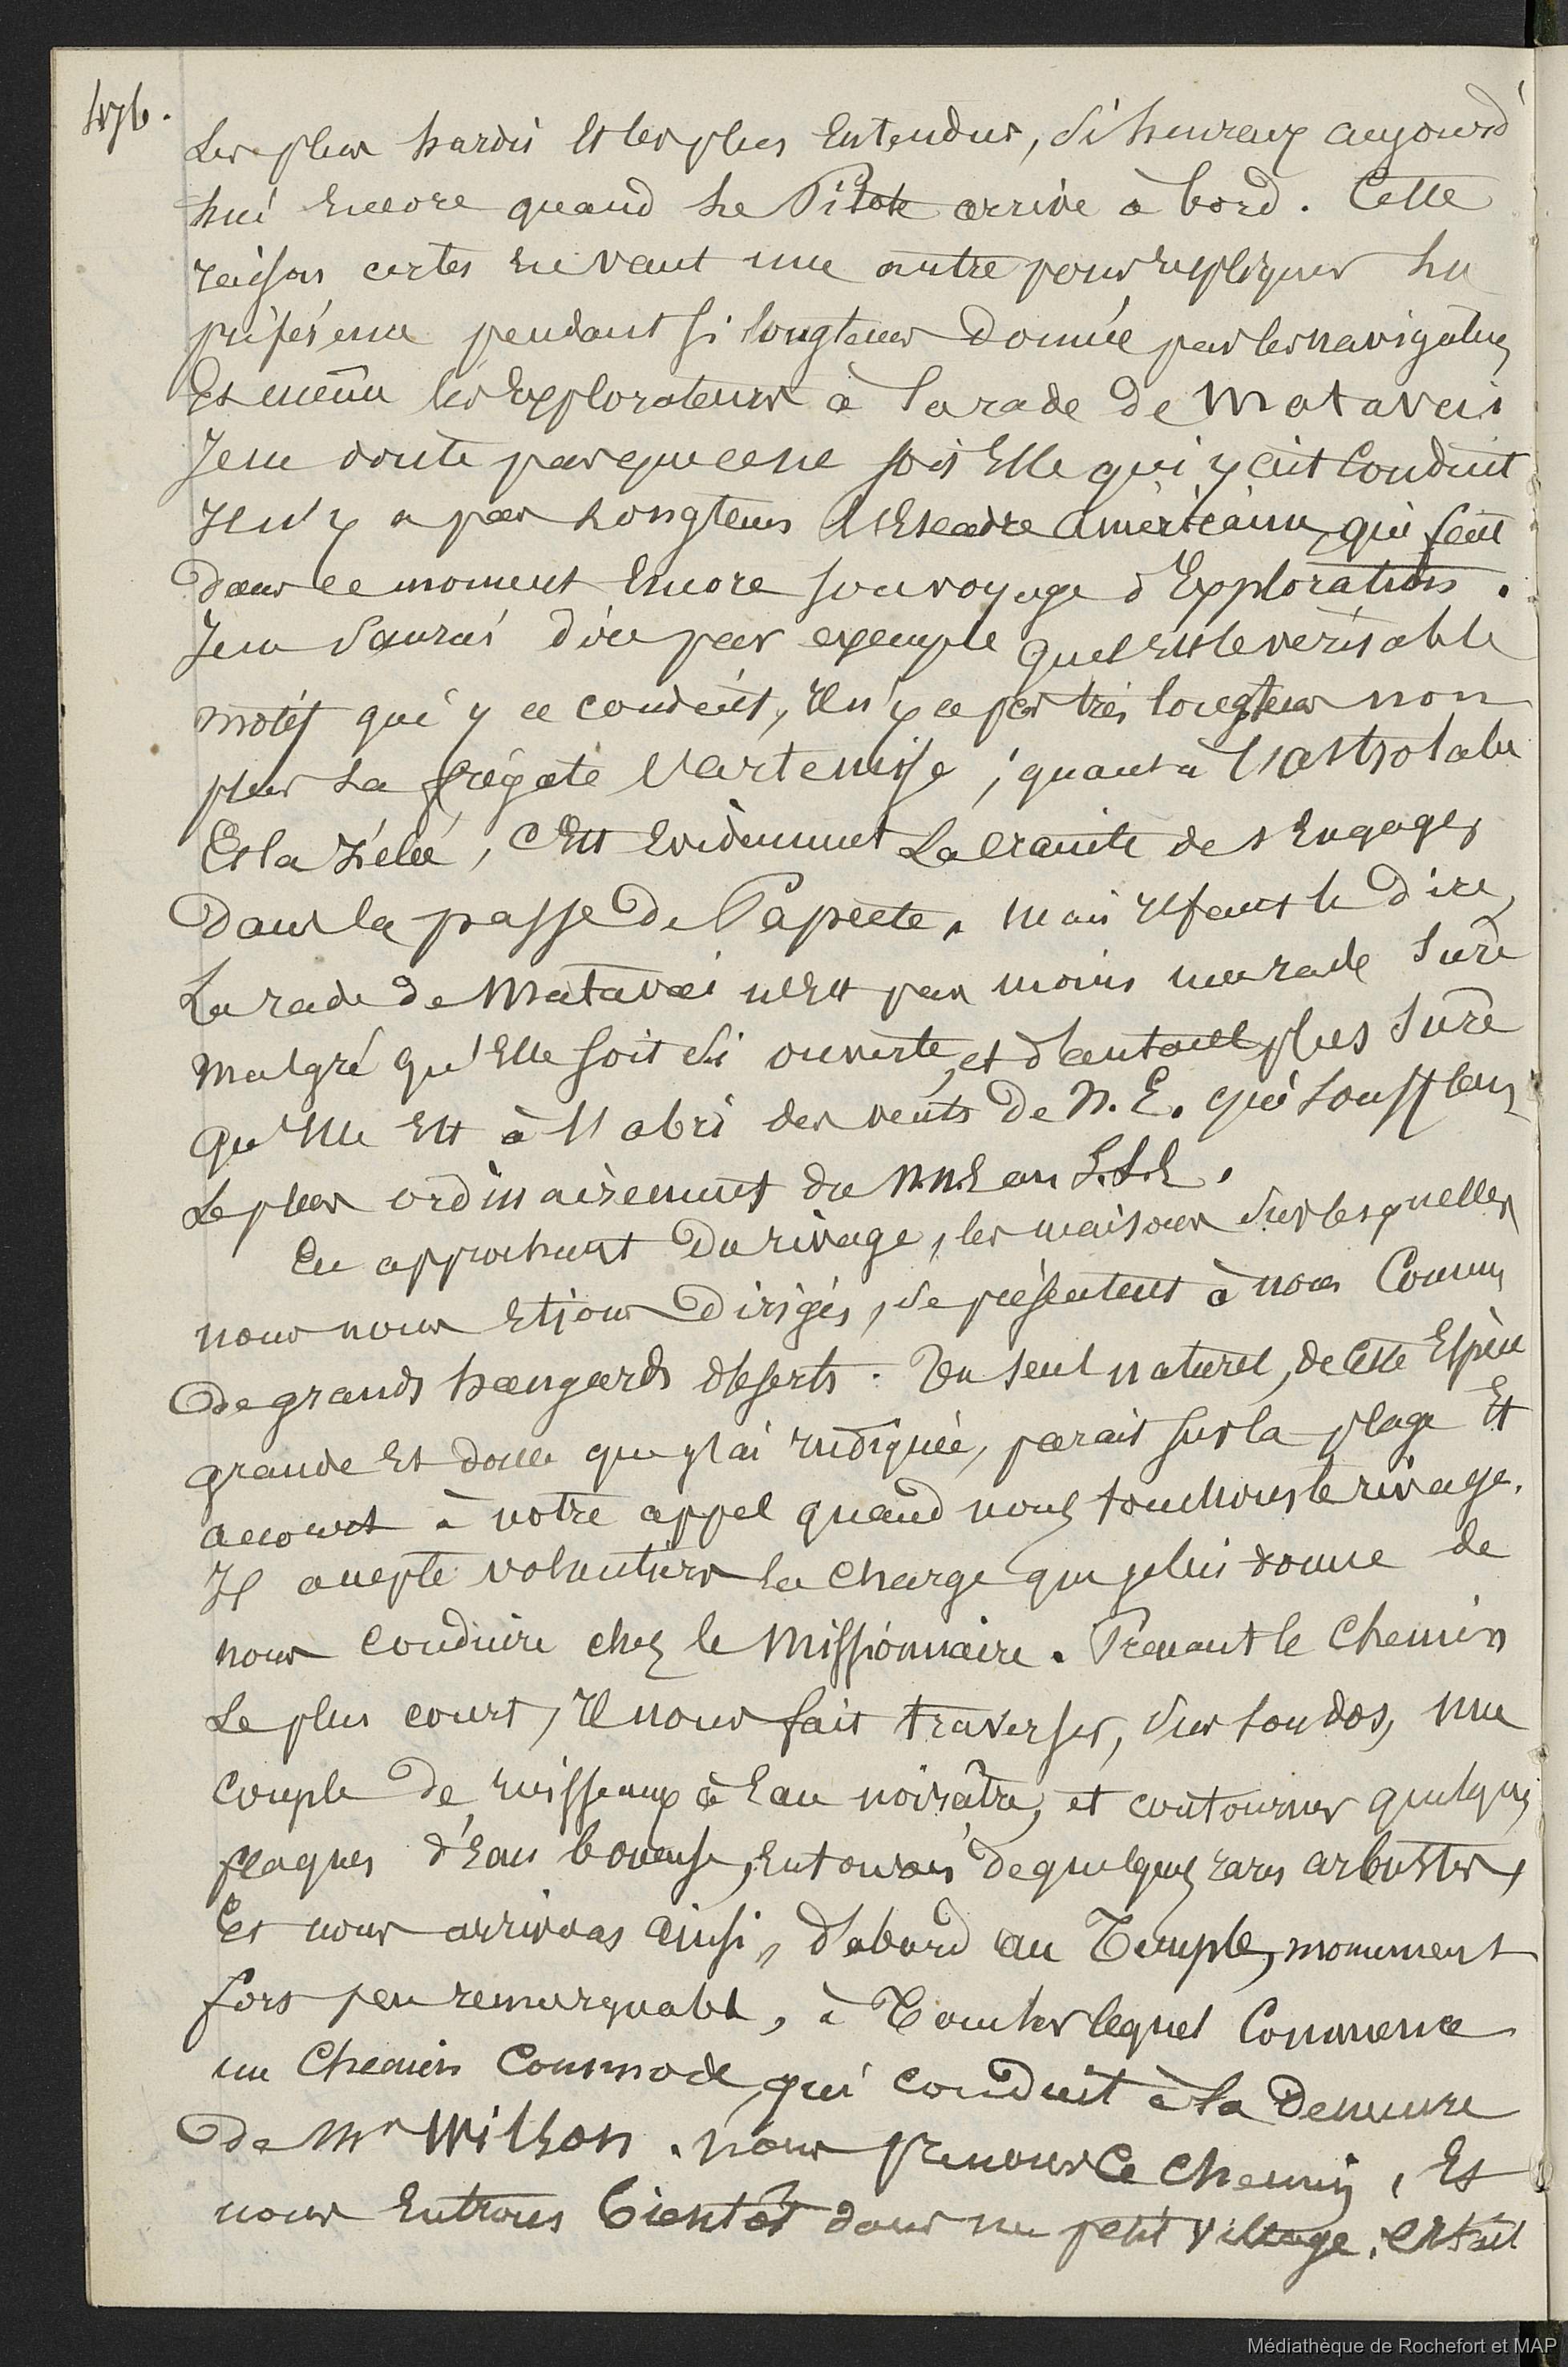 476.
Les plus hardis et les plus entendus, si heureux aujourd'
hui encore quand le Pilote arrive à bord. Cette
raison certes en vaut une autre pour expliquer la
préférence pendant si longtems donnée par les navigateurs
Et même les Explorateurs à la rade de Matavai
Je ne doute pas que ce ne soit Elle qui y ait conduit
Il n'y a pas longtems l'Escadre américaine, qui fait
dans ce moment Encore son voyage d'Exploration.
Je ne saurai dire par exemple quel est le véritable
motif qui y a conduit, il n'y a pas très longtems non
plus la frégate l'artémise ; quant à l'astrolabe
Et la Zélée, c'est Evidemment la crainte de s'Engager
dans la passe de Papeete. Mais il faut le dire,
La rade de Matavai n'est pas moins une rade sure
malgré qu'Elle soit si ouverte, et d'autant plus sure
qu'Elle est à l'abri des vents de N.E. qui soufflent
Le plus ordinairement du N.N.E au S.S.E.
En approchant du rivage, les maisons sur lesquelles
nous nous étions dirigés, se présentent à nous comme
de grands hangards déserts. Un seul naturel, de cette Espèce
grande et douce que j'ai indiquée, parait sur la plage Et
accourt à notre appel quand nous touchons le rivage.
Il accepte volontiers la charge que je lui donne de
nous conduire chez le Missionnaire. Prenant le chemin
Le plus court, Il nous fait traverser, sur son dos, une
couple de ruisseaux à Eau noirâtre, et contourner quelques
flaques d'Eau boueuse, entourées de quelques rares arbustes,
Et nous arrivons ainsi, d'abord au Temple, monument
fort peu remarquable, à toucher lequel commence
un chemin commode, qui conduit à la demeure
de Mr Wilson. Nous prenons ce chemin, Et
nous Entrons bientôt dans un petit village.